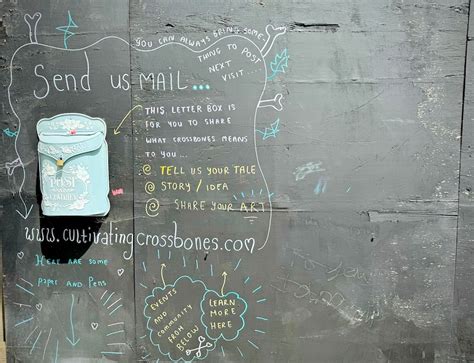 YOU CAN ALWAYS BRING SOME-
THING TO POST
NEXT
VISIT...
Send us MAIL...
THIS LETTER BOX IS
FOR YOU TO SHARE
WHAT CROSSBONES MEANS
TO YOU...
@ TELL US YOUR TALE
@ STORY / IDEA
@ SHARE YOUR ART
POST
www.cultivatingcrossbones.co
HERE ARE SOME
PAPER AND PENS
EVENTS
AND
COMMUNITY
FROM
BELOW
LEARN
MORE
HERE